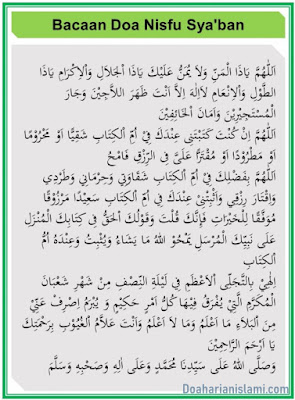 Bacaan Doa Nisfu Sya'ban
اَللّٰهُمَّ يَاذَا الْمَنِّ وَلَا يُمَنُّ عَلَيْكَ يَاذَا الْجَلَالِ وَاْلإِكْرَامِ يَاذَا
الطَّوْلِ وَاْلإِنْعَامِ لَاإِلٰهَ إِلاَّ اَنْتَ ظَهْرَ اللَّاجِيْنَ وَجَارَ
الْمُسْتَجِيْرِيْنَ وَاَمَانَ الْخَائِفِيْنَ
اَللّٰهُمَّ إِنْ كُنْتَ كَتَبْتَنِى عِنْدَكَ فِيْ اُمِّ الْكِتَابِ شَقِيًّا اَوْ مَحْرُوْمًا
اَوْ مَطْرُوْدًا اَوْ مُقْتَرًّا عَلَيَّ فِى الرِّزْقِ فَامْحُ
اَللّٰهُمَّ بِفَضْلِكَ فِيْ اُمِّ الْكِتَابِ شَقَاوَتِيْ وَحِرْمَانِي وَطَرْدِيْ
وَاِقْتَارَ رِزْقِي وَاَثْبِتْنِيْ عِنْدَكَ فِي اُمِّ الْكِتَابِ سَعِيْدًا مَرْزُوْقًا
مُوَفَّقًا لِلْخَيْرَاتِ فَإِنَّكَ قُلْتَ وَقَوْلُكَ الْحَقُّ فِى كِتَابِكَ الْمُنْزَلِ
عَلَى نَبِيِّكَ الْمُرْسَلِ يَمْحُوْ اللهُ مَا يَشَاءُ وَيُثْبِتُ وَعِنْدَهُ اُمُّ
الْكِتَابِ
اِلٰهِيْ بِالتَّجَلِّى اْلاَعْظَمِ فِي لَيْلَةِ النِّصْفِ مِنْ شَهْرِ شَعْبَانَ
الْمُكَرَّمِ الَّتِيْ يُفْرَقُ فِيْهَا كُلُّ اَمْرٍ حَكِيْمٍ وَ يُبْرَمُ اِصْرِفْ عَنِّيْ
مِنَ اْلبَلَاءِ مَا اَعْلَمُ وَمَا لَا اَعْلَمُ وَاَنْتَ عَلَّامُ الْغُيُوْبِ بِرَحْمَتِكَ
يَا اَرْحَمَ الرَّاحِمِيْنَ
وَصَلَّى اللهُ عَلَى سَيِّدِنَا مُحَمَّدٍ وَعَلَى اٰلِهِ وَصَحْبِهِ وَسَلَّمَ
Doaharianislami.com